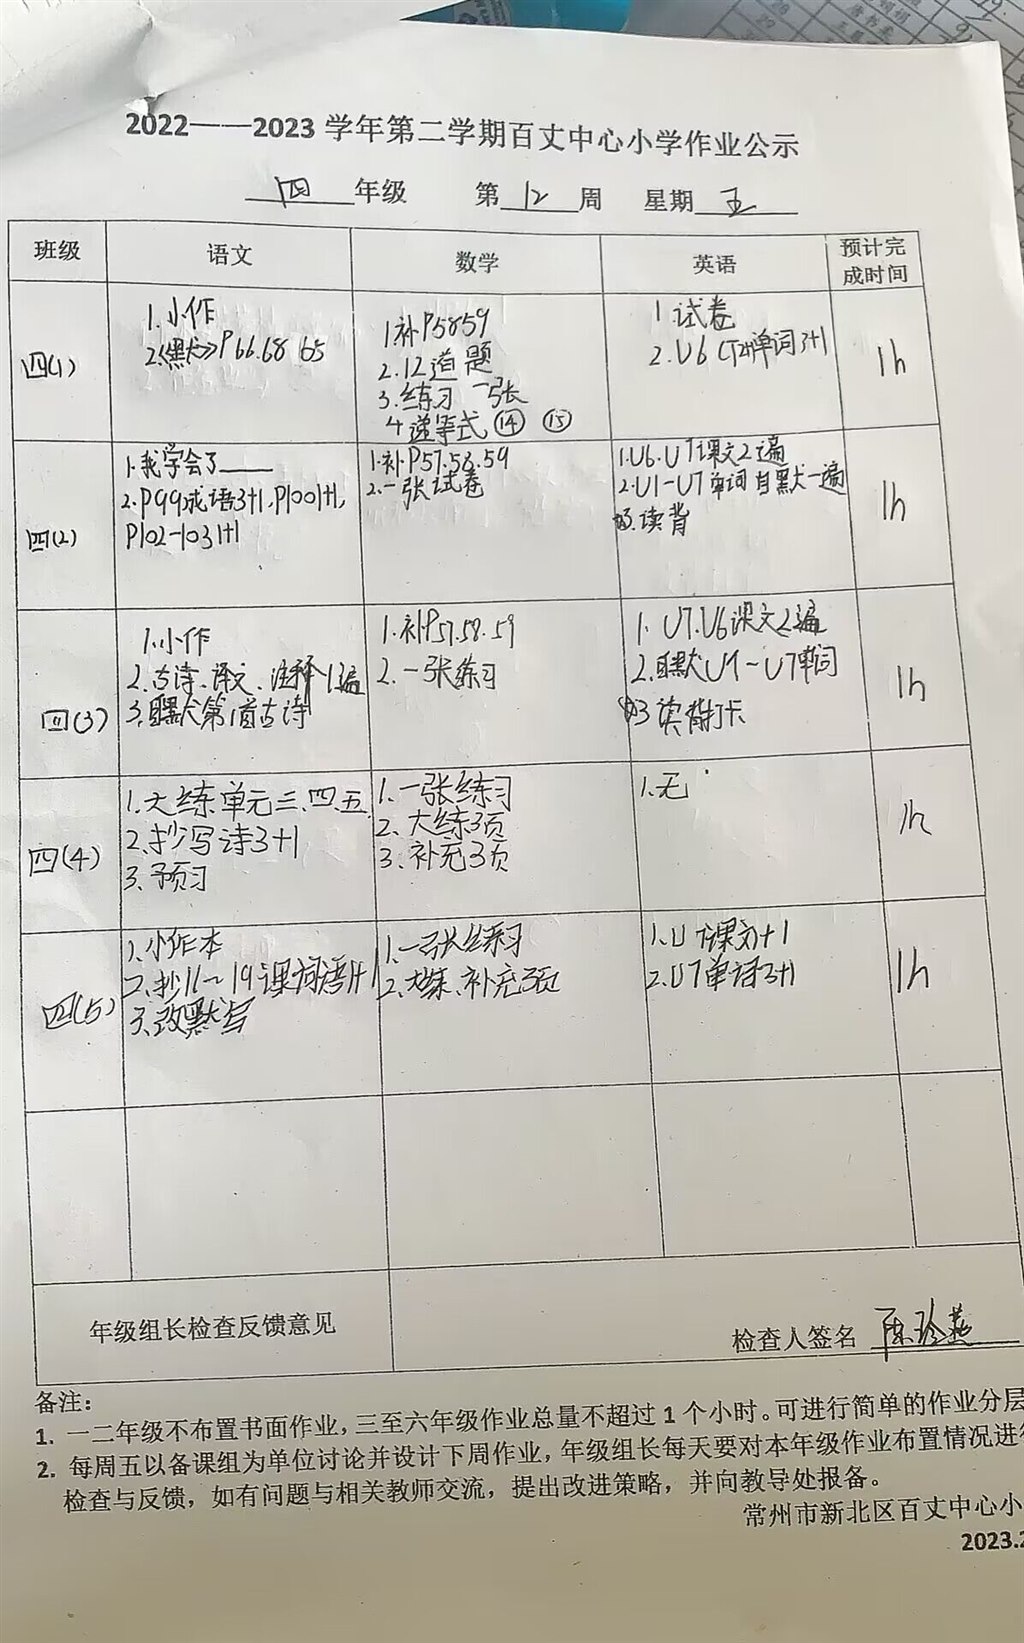 2022——2023 学年第二学期百丈中心小学作业公示
四 年级 第 12 周 星期 五
班级 语文 数学 英语 预计完成时间
四(1)
1.小作
2.《默》P66.68 65
1补P5859
2.12道题
3.练习一张
4递等式⑭ ⑮
1.试卷
2.U6 单词3+1
1h
四(2)
1.我学会了____
2.P99成语3+1,P1001+1,
P102-1031+1
1.补P57.58.59
2.一张试卷
1.U6.U7课文2遍
2.U1-U7单词自默一遍
3.读背
1h
四(3)
1.小作
2.古诗、译文、注释1遍
3.自默第1首古诗
1.补P57.58.59
2.一张练习
1. U7.U6课文2遍
2.自默U1~U7单词
3 读背打卡
1h
四(4)
1.大练单元三、四、五
2.抄写诗3+1
3.预习
1.一张练习
2.大练3页
3.补充3页
1.无
1h
四(5)
1.小作本
2.抄16~19课词语1+1
3.改默写
1.一张练习
2.大练、补充3页
1.U7课文1+1
2.U7单词3+1
1h
年级组长检查反馈意见
检查人签名 陈珍燕
备注:
1. 一二年级不布置书面作业,三至六年级作业总量不超过 1 个小时。可进行简单的作业分层
2. 每周五以备课组为单位讨论并设计下周作业,年级组长每天要对本年级作业布置情况进行
检查与反馈,如有问题与相关教师交流,提出改进策略,并向教导处报备。
常州市新北区百丈中心小
2023.2